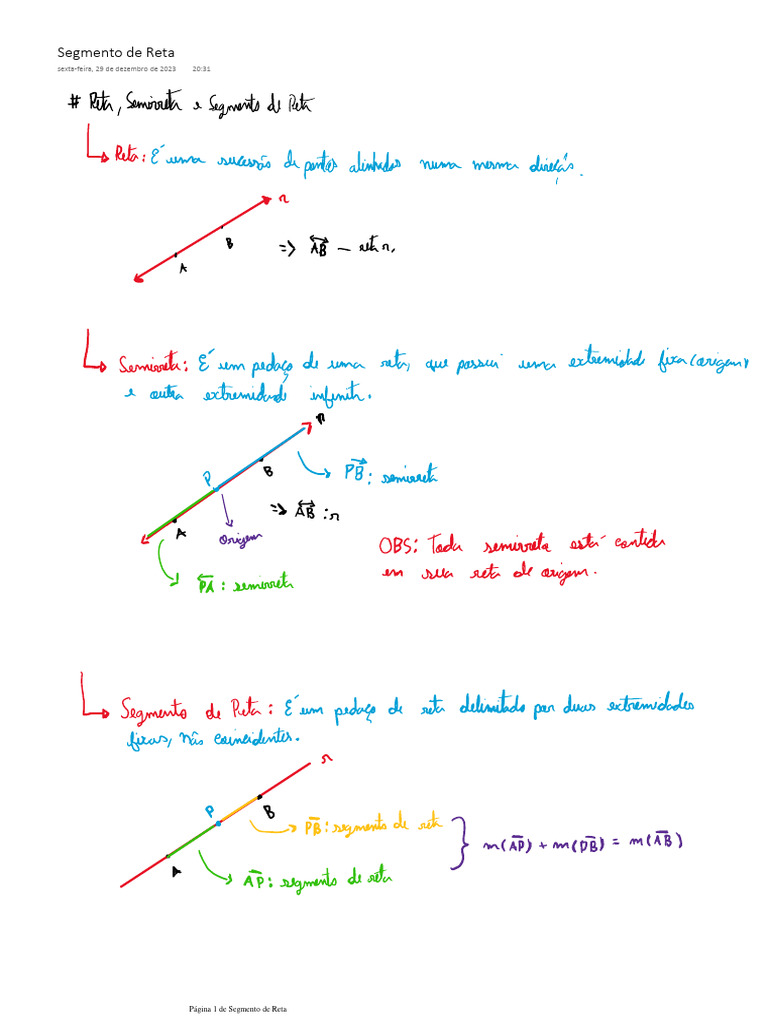 Segmento de Reta
sexta-feira, 29 de dezembro de 2023 20:31
# Reta, Semirreta e Segmento de Reta
Reta: É uma sucessão de pontos alinhados numa mesma direção.
r
B
A
=> AB — reta r.
Semirreta: É um pedaço de uma reta, que possui uma extremidade fixa (origem)
e outra extremidade infinita.
r
P
B
PB: semirreta
A
=> AB : r
Origem
OBS: Toda semirreta está contida
em sua reta de origem.
PA : semirreta
Segmento de Reta: É um pedaço de reta delimitado por duas extremidades
fixas, não coincidentes.
r
P
B
PB: segmento de reta
m(AP) + m(PB) = m(AB)
A
AP: segmento de reta
Página 1 de Segmento de Reta